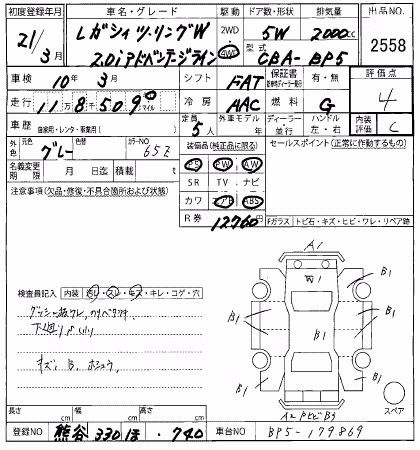 初度登録年月 車名・グレード 駆動 ドア数・形状 排気量 出品NO.
21/3月 レガシィツーリングW 2WD 5W 2000cc 2558
2.0iアドバンテージライン 4WD 型式 CBA-BP5
車検 10年3月 シフト FAT 保証書 有・無 評価点
走行 11万8千509㌔マイル 冷房 AAC 燃料 G 4
車歴 自家用・レンタ・事業用( ) 定員 5人 外車モデル ディーラー 並行 ハンドル 左・右 内装評価 C
外色 元色 グレー 色替 カラーNO 65Z 装備品(純正品に限る) セールスポイント(正常に動作するもの)
名義変更期限 月 日迄 積載 t PS PW AW
注意事項(欠品・修復・不具合箇所および状態) SR TV ナビ
カワ エアB ABS
R券 12760円
Fガラス トビ石・キズ・ヒビ・ワレ・リペア跡
A1
B1
B1
B1
B1
B1
B1
検査員記入 内装 汚レ・スレ・キズ・キレ・コゲ・穴
下廻り
キズ、B、ホシュウ
スペア
長さ cm 幅 cm 高さ cm
登録NO 熊谷 330 ほ ・740 車台NO BP5-179869